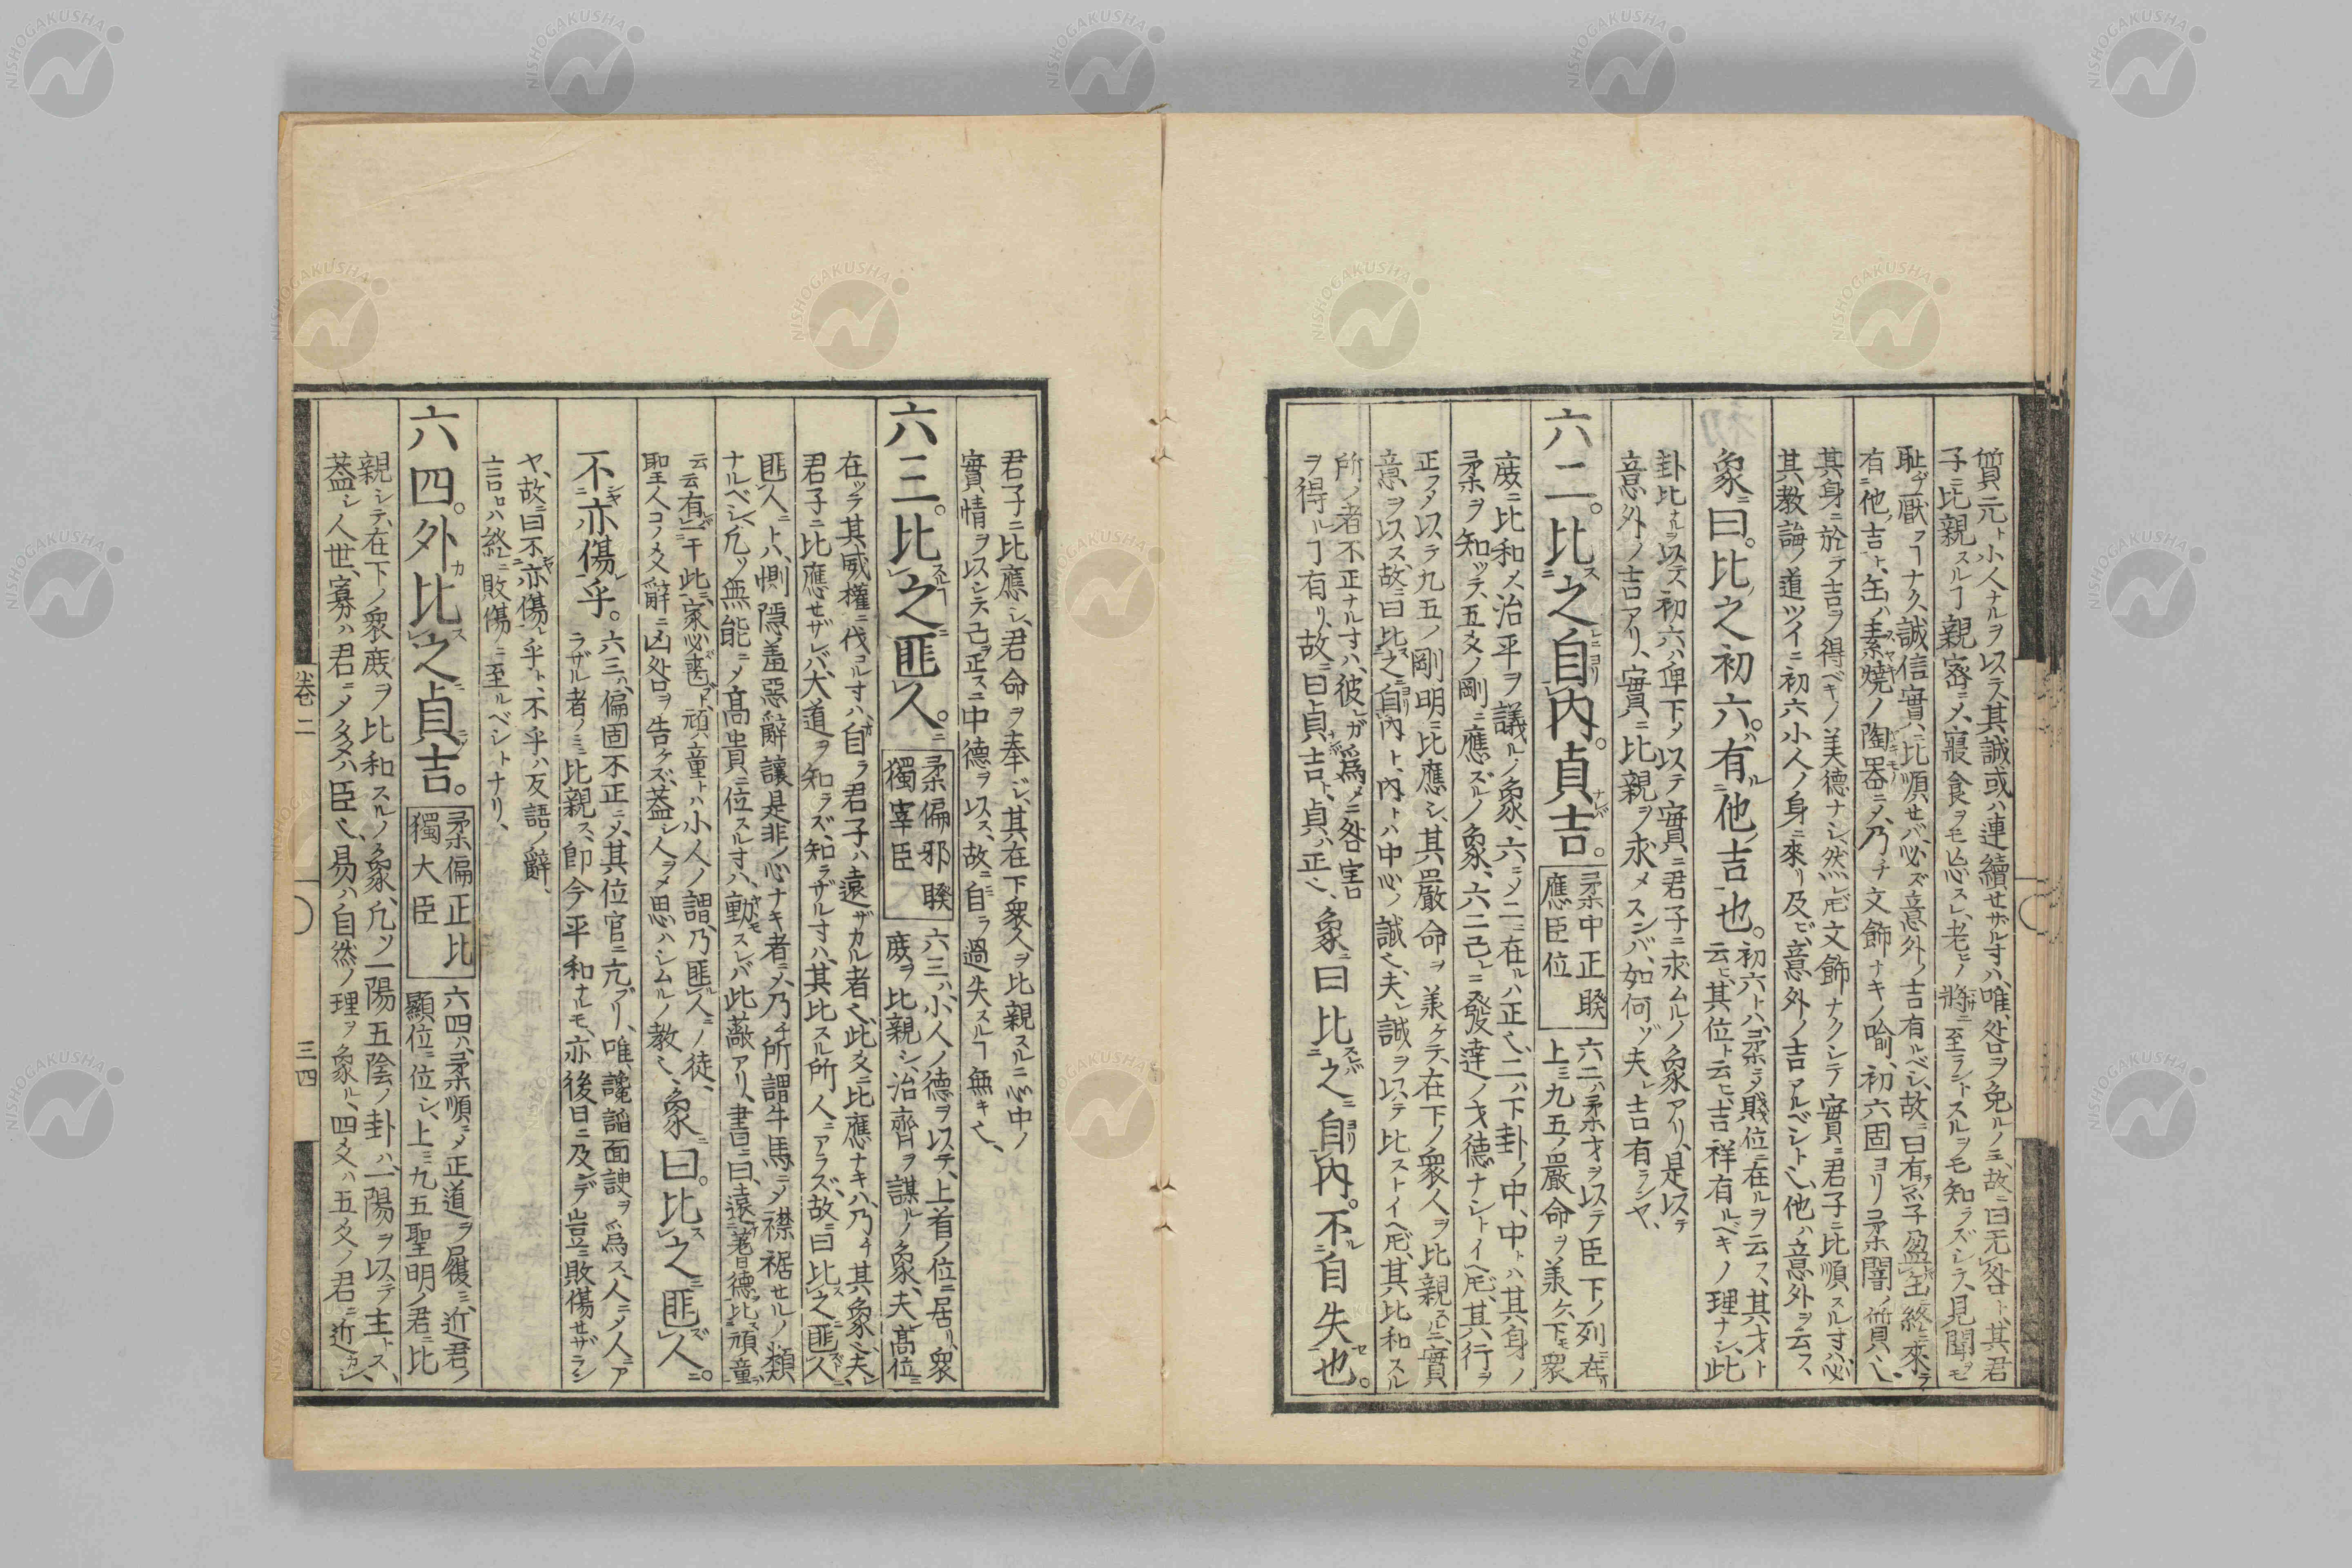 質元ト小人ナルヲ以テ其誠或ハ連續セザル寸ハ唯咎ヲ免ルノミ故ニ曰无咎ト其君
子ニ比親スルヿ親密ニメ寢食ヲモ忘スレ老ヒノ將ニ至ラントスルヲモ知ラズシテ見聞ヲモ
恥ヂ厭フヿナク誠信實ニ比順セバ必ズ意外ノ吉有ルベシ故ニ曰有孚盈缶終ニ來テ
有他吉ト缶ハ素燒ノ陶器ニメ乃チ文飾ナキノ喻初六固ヨリ柔闇ノ質也
其身ニ於テ吉ヲ得ベキノ美德ナシ然レ𪜈文飾ナクシテ實ニ君子ニ比順スル寸ハ必
其教誨ノ道ツイニ初六小人ノ身ニ來リ及ビ意外ノ吉アルベシト也他ハ意外ヲ云ス
象曰。比之初六。有他吉也。
初六トハ柔ニメ賤位ニ在ルヲ云ス其才ト
云ヒ其位ト云ヒ吉祥有ルベキノ理ナシ此
卦比ナルヲ以テ初六ハ卑下メ以テ實ニ君子ニ求ムルノ象アリ是以テ
意外ノ吉アリ實ニ比親ヲ求メスンバ如何ゾ夫レ吉有ラシヤ
六二。比之自內。貞吉。
柔中正睽
應臣位
六二ハ柔才ヲ以テ臣下ノ列ニ在リ
上ミ九五ノ嚴命ヲ義ケ下モ眾
庶ニ比和メ治平ヲ議ルノ象六ニメ二ニ在ルハ正也二ハ下卦ノ中中トハ其身ノ
柔ヲ知ッテ五爻ノ剛ニ應ズルノ象六二己レニ發達ノ才德ナシトイヘ𪜈其行ヲ
正フメ以テ九五ノ剛明ニ比應シ其嚴命ヲ義ケテ在下ノ眾人ヲ比親スルニ實
意ヲ以ス故ニ曰比之自內ト內トハ中心ノ誠也夫レ誠ヲ以テ比ストイヘ𪜈其比和スル
所ノ者不正ナル寸ハ彼レガ爲メニ咎害
ヲ得ルヿ有リ故ニ曰貞吉ト貞ハ正也
象曰比之自內。不自失也。
君子ニ比應シ君命ヲ奉ジ其在下眾人ヲ比親スルニ心中ノ
實情ヲ以シテ己ヲ正スニ中德ヲ以ス故ニ自ラ過失スルヿ無キ也
六三。比之匪人。
柔偏邪睽
獨宰臣
六三ハ小人ノ德ヲ以テ上首ノ位ニ居リ眾
庶ヲ比親シ治齊ヲ謀ルノ象夫レ高位ニ
在ッテ其威權ニ伐コル寸ハ自ラ君子ハ遠ザカル者也此爻ニ比應ナキハ乃チ其象也夫レ
君子ニ比應セザレバ大道ヲ知ラズ知ラザル寸ハ其比スル所人ニアラズ故ニ曰比之匪人
匪人トハ惻隱羞惡辭讓是非ノ心ナキ者ニメ乃チ所謂牛馬ニメ襟裾セルノ類
ナルベシ凢ソ無能ニメ高貴ニ位スル寸ハ動モスレバ此蔽アリ書ニ曰遠耆德比頑童
云云有一于此家必喪ト頑童トハ小人ノ謂乃匪人ノ徒
聖人コノ爻辭ニ凶咎ヲ告ケズ蓋シ人ヲメ思ハシムルノ教也
象曰。比之匪人。
不亦傷乎。
六三ハ偏固不正ニメ其位官ニ亢ブリ唯讒謟面諛ヲ爲ス人ニメ人ニア
ラザル者ノミニ比親ス卽今平和ナルモ亦後日ニ及ンデ豈ニ敗傷セザラシ
ヤ故ニ曰不亦傷乎ト不乎ハ反語ノ辭
言ロハ終ニ敗傷ニ至ルベシトナリ
六四。外比之貞吉。
柔偏正比
獨大臣
六四ハ柔順ニメ正道ヲ履ミ近君ノ
顯位ニ位シ上ミ九五聖明ノ君ニ比
親シテ在下ノ眾庶ヲ比和スルノ象凢ソ一陽五陰ノ卦ハ一陽ヲ以テ主トス
蓋シ人世寡ハ君ニメ多ハ臣也易ハ自然ノ理ヲ象ル四爻ハ五爻ノ君ニ近カシ
卷二
三四